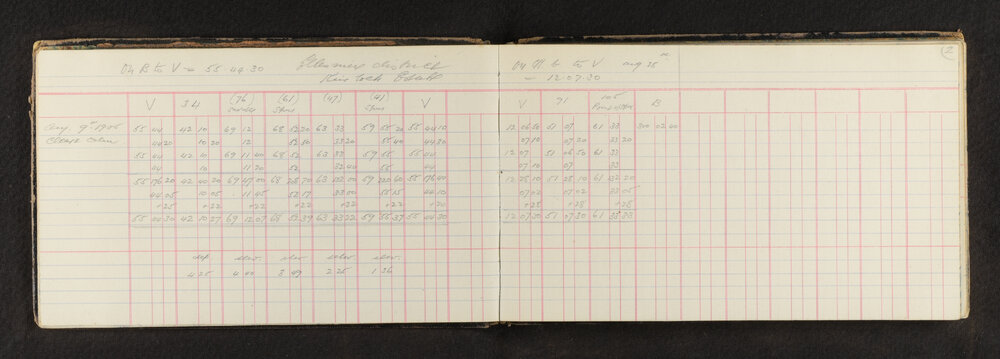 On B to V = 55.44.30
Ellesmere district
On M to V Aug 25
= 12.07.30
2
V 34 (76) (61) (47) (41) V
V 71 105 B
Aug. 9th 1905 55 44 42 10 69 12 68 52 20 63 33 59 55 20 55 44 10
12 06 50 51 07 61 33 300 02 40
44 20 10 20 12 52 50 33 20 55 40 44 30
07 10 07 20 33 20
55 44 42 10 69 11 40 68 52 63 33 59 55 55 44
12 07 51 06 50 61 33
44 10 11 20 52 32 40 55 44
07 10 07 33
55 176 20 42 40 20 69 47 00 68 63 132 00 59 220 60 55 176 40
12 28 10 51 28 10 61 132 20
44 05 10 05 11 45 52 17 33 00 55 15 44 10
07 02 07 02 33 05
+25 +22 +22 +22 +22 +22 +20
+28 +28 +28
55 44 30 42 10 27 69 12 07 68 52 39 63 33 22 59 55 37 55 44 30
12 07 30 51 07 30 61 33 33
dep elev elev elev elev
4 25 4 40 3 49 2 25 1 36